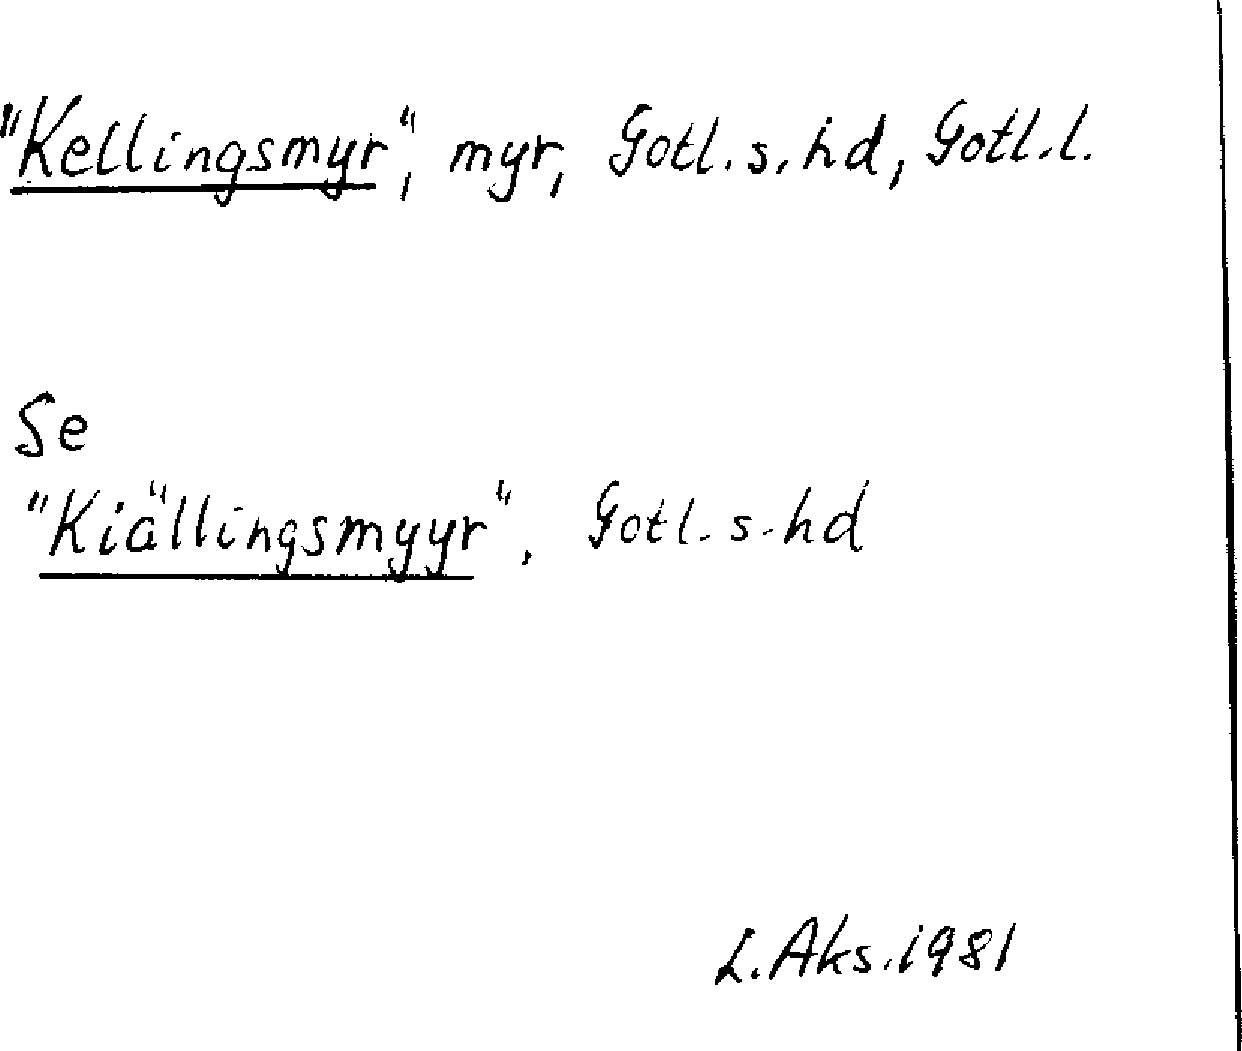 "Kellingsmyr", myr, Gotl. s. hd, Gotl. l.
Se
"Kiällingsmyyr", Gotl. s. hd
L. Aks. 1981